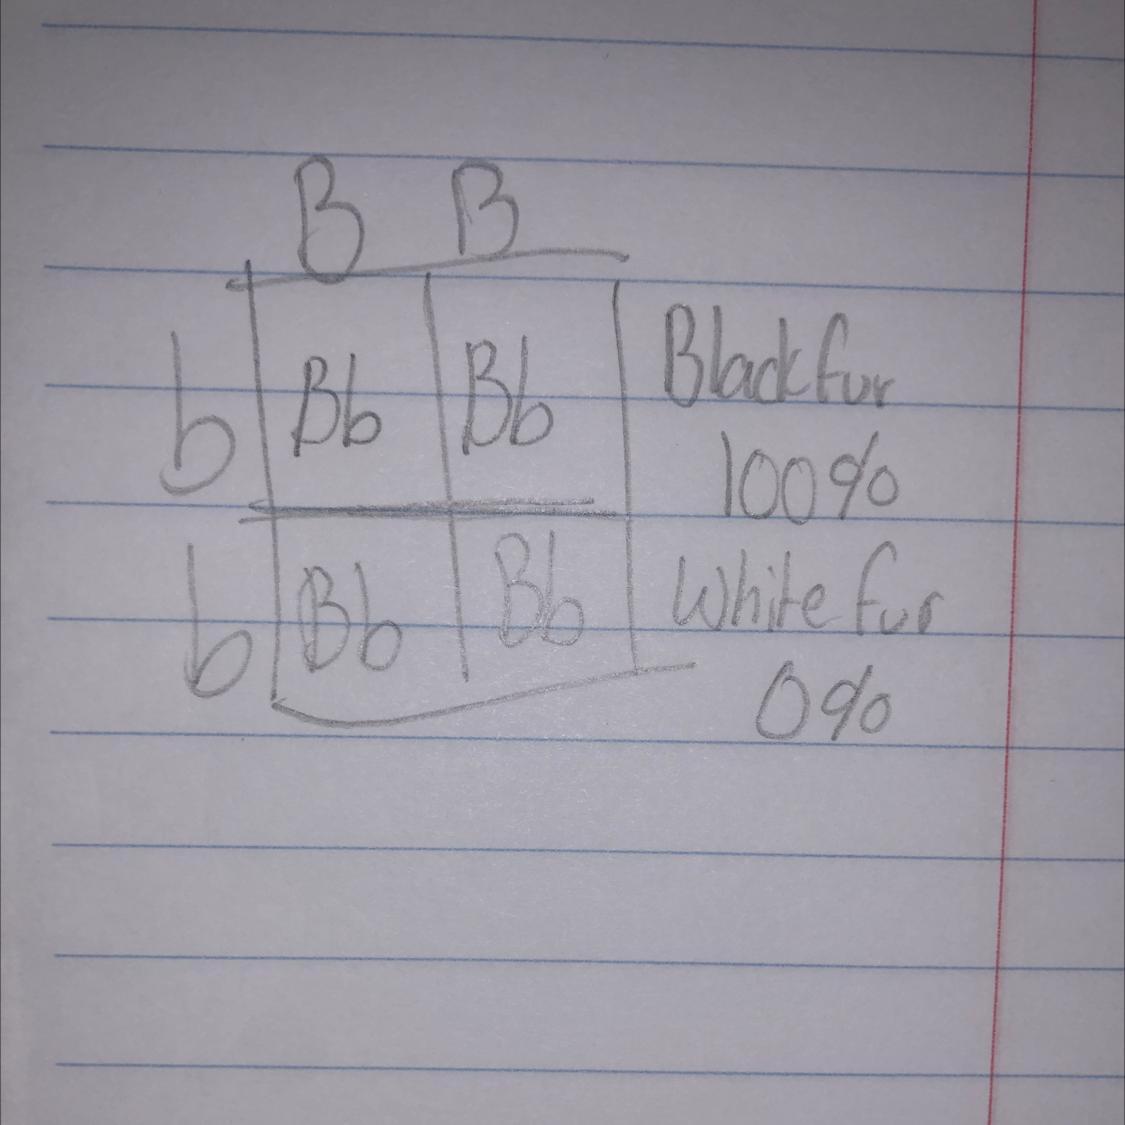 B B
b Bb Bb Black fur
100%
b Bb Bb White fur
0%